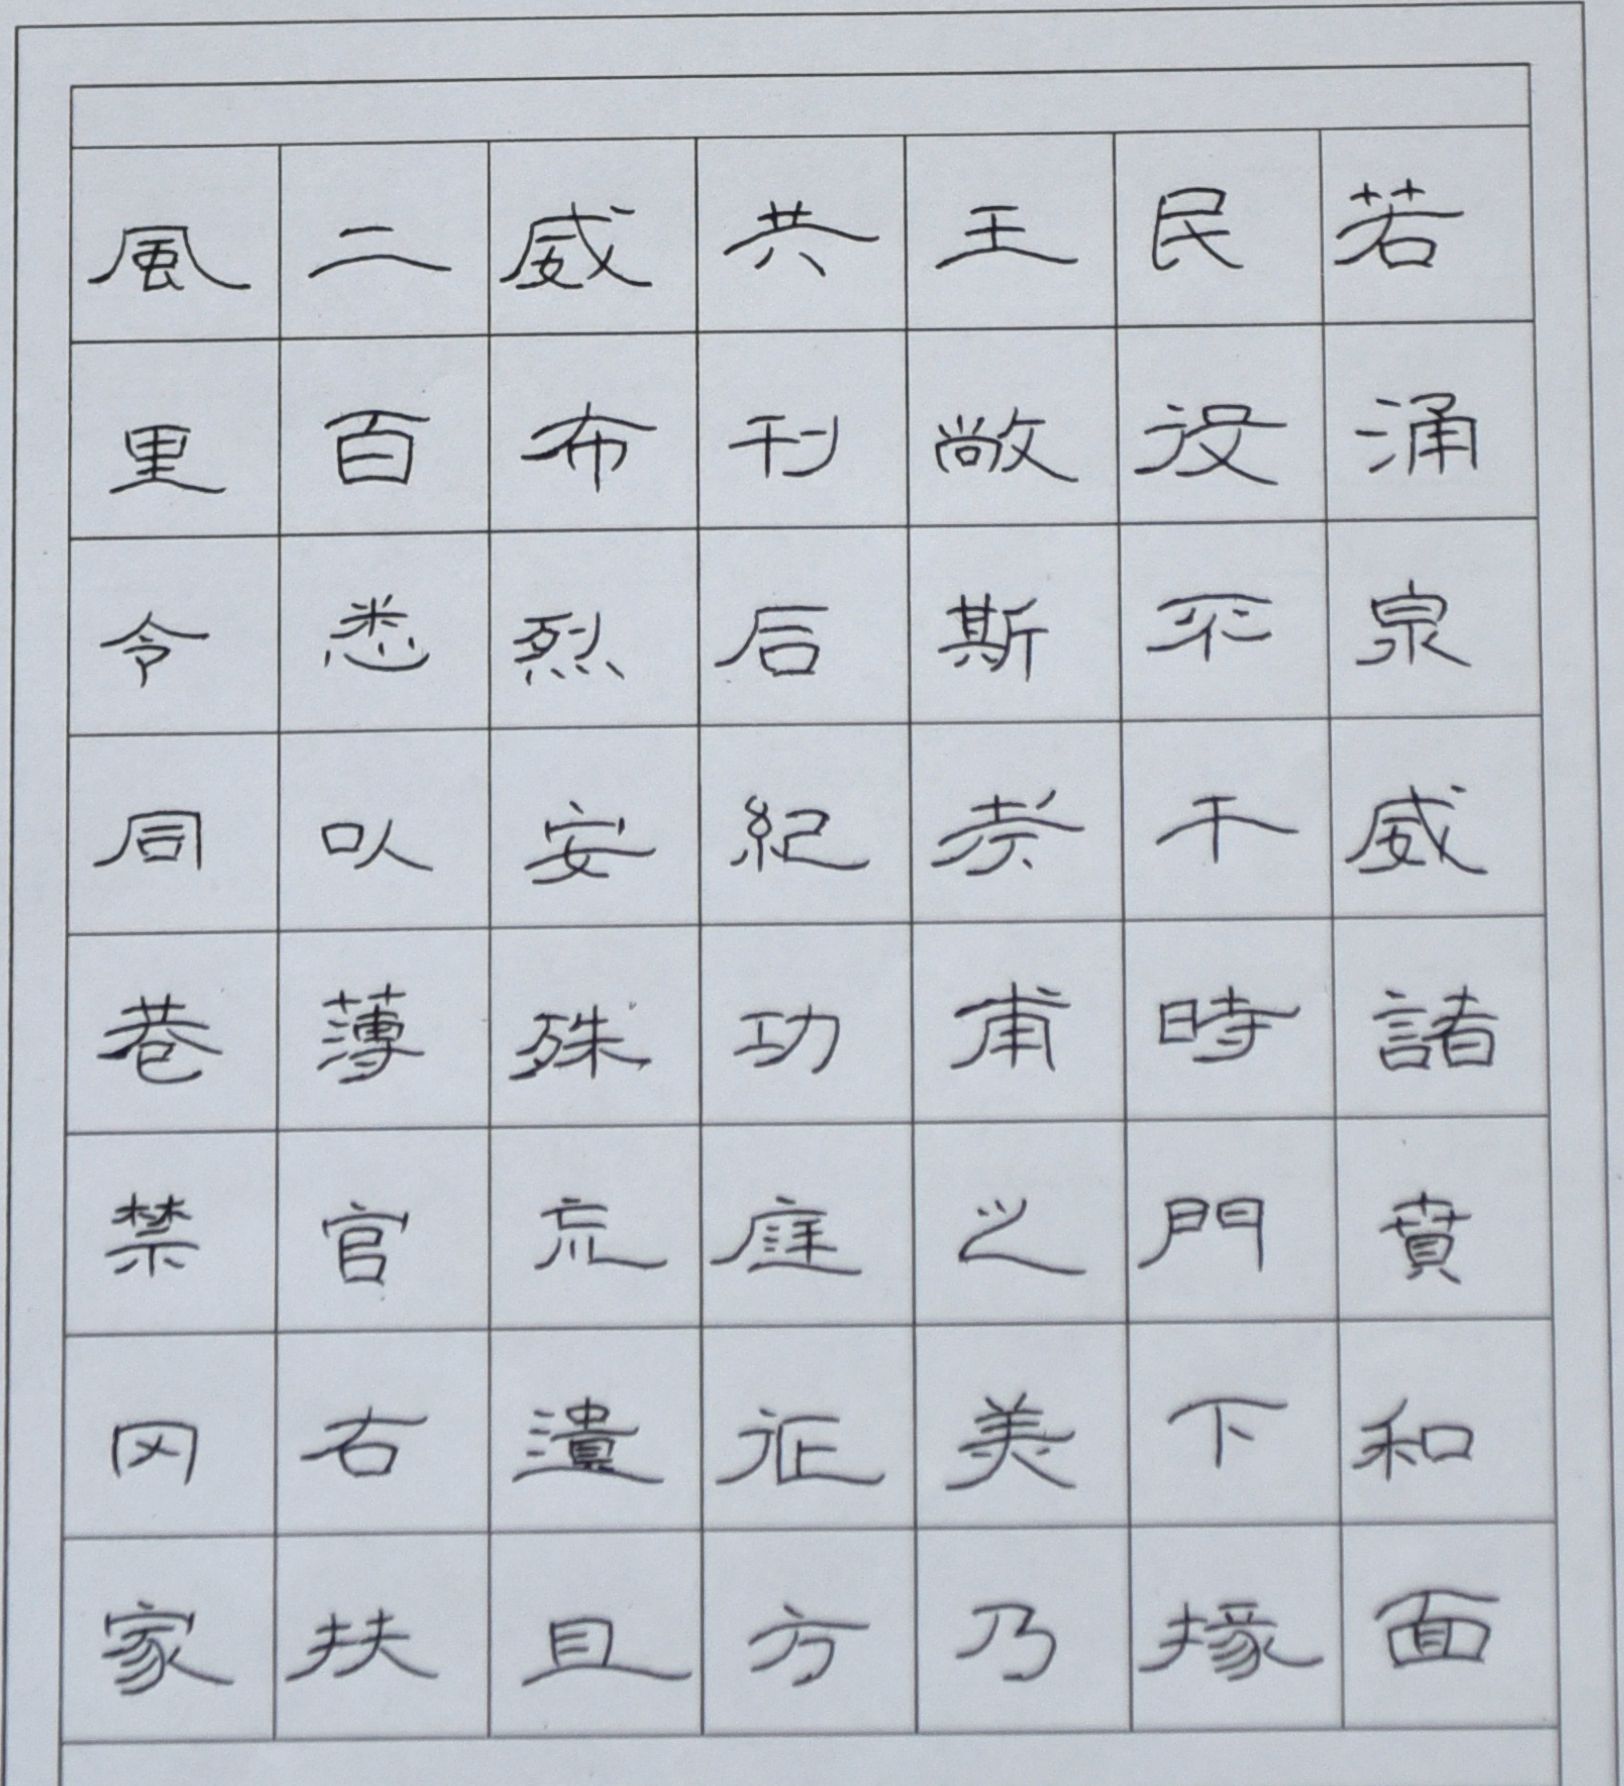 若涌泉威諸賁和面
民役不干時門下掾
王敞斯考甫之美乃
共刊石紀功庭征方
威布烈安殊荒遺且
二百悉以薄官右扶
風里令同巷禁冈家